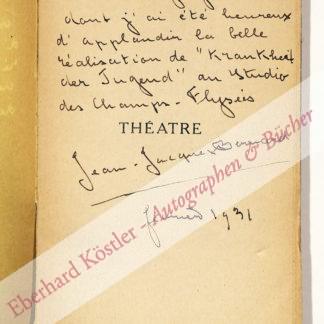 dont j'ai été heureux
d'applaudir la belle
réalisation de "Krankheit
der Jugend" au Studio
des Champs-Elysées
THÉATRE
Jean-Jacques Bernard
1931
Eberhard Köstler - Autographen & Bücher